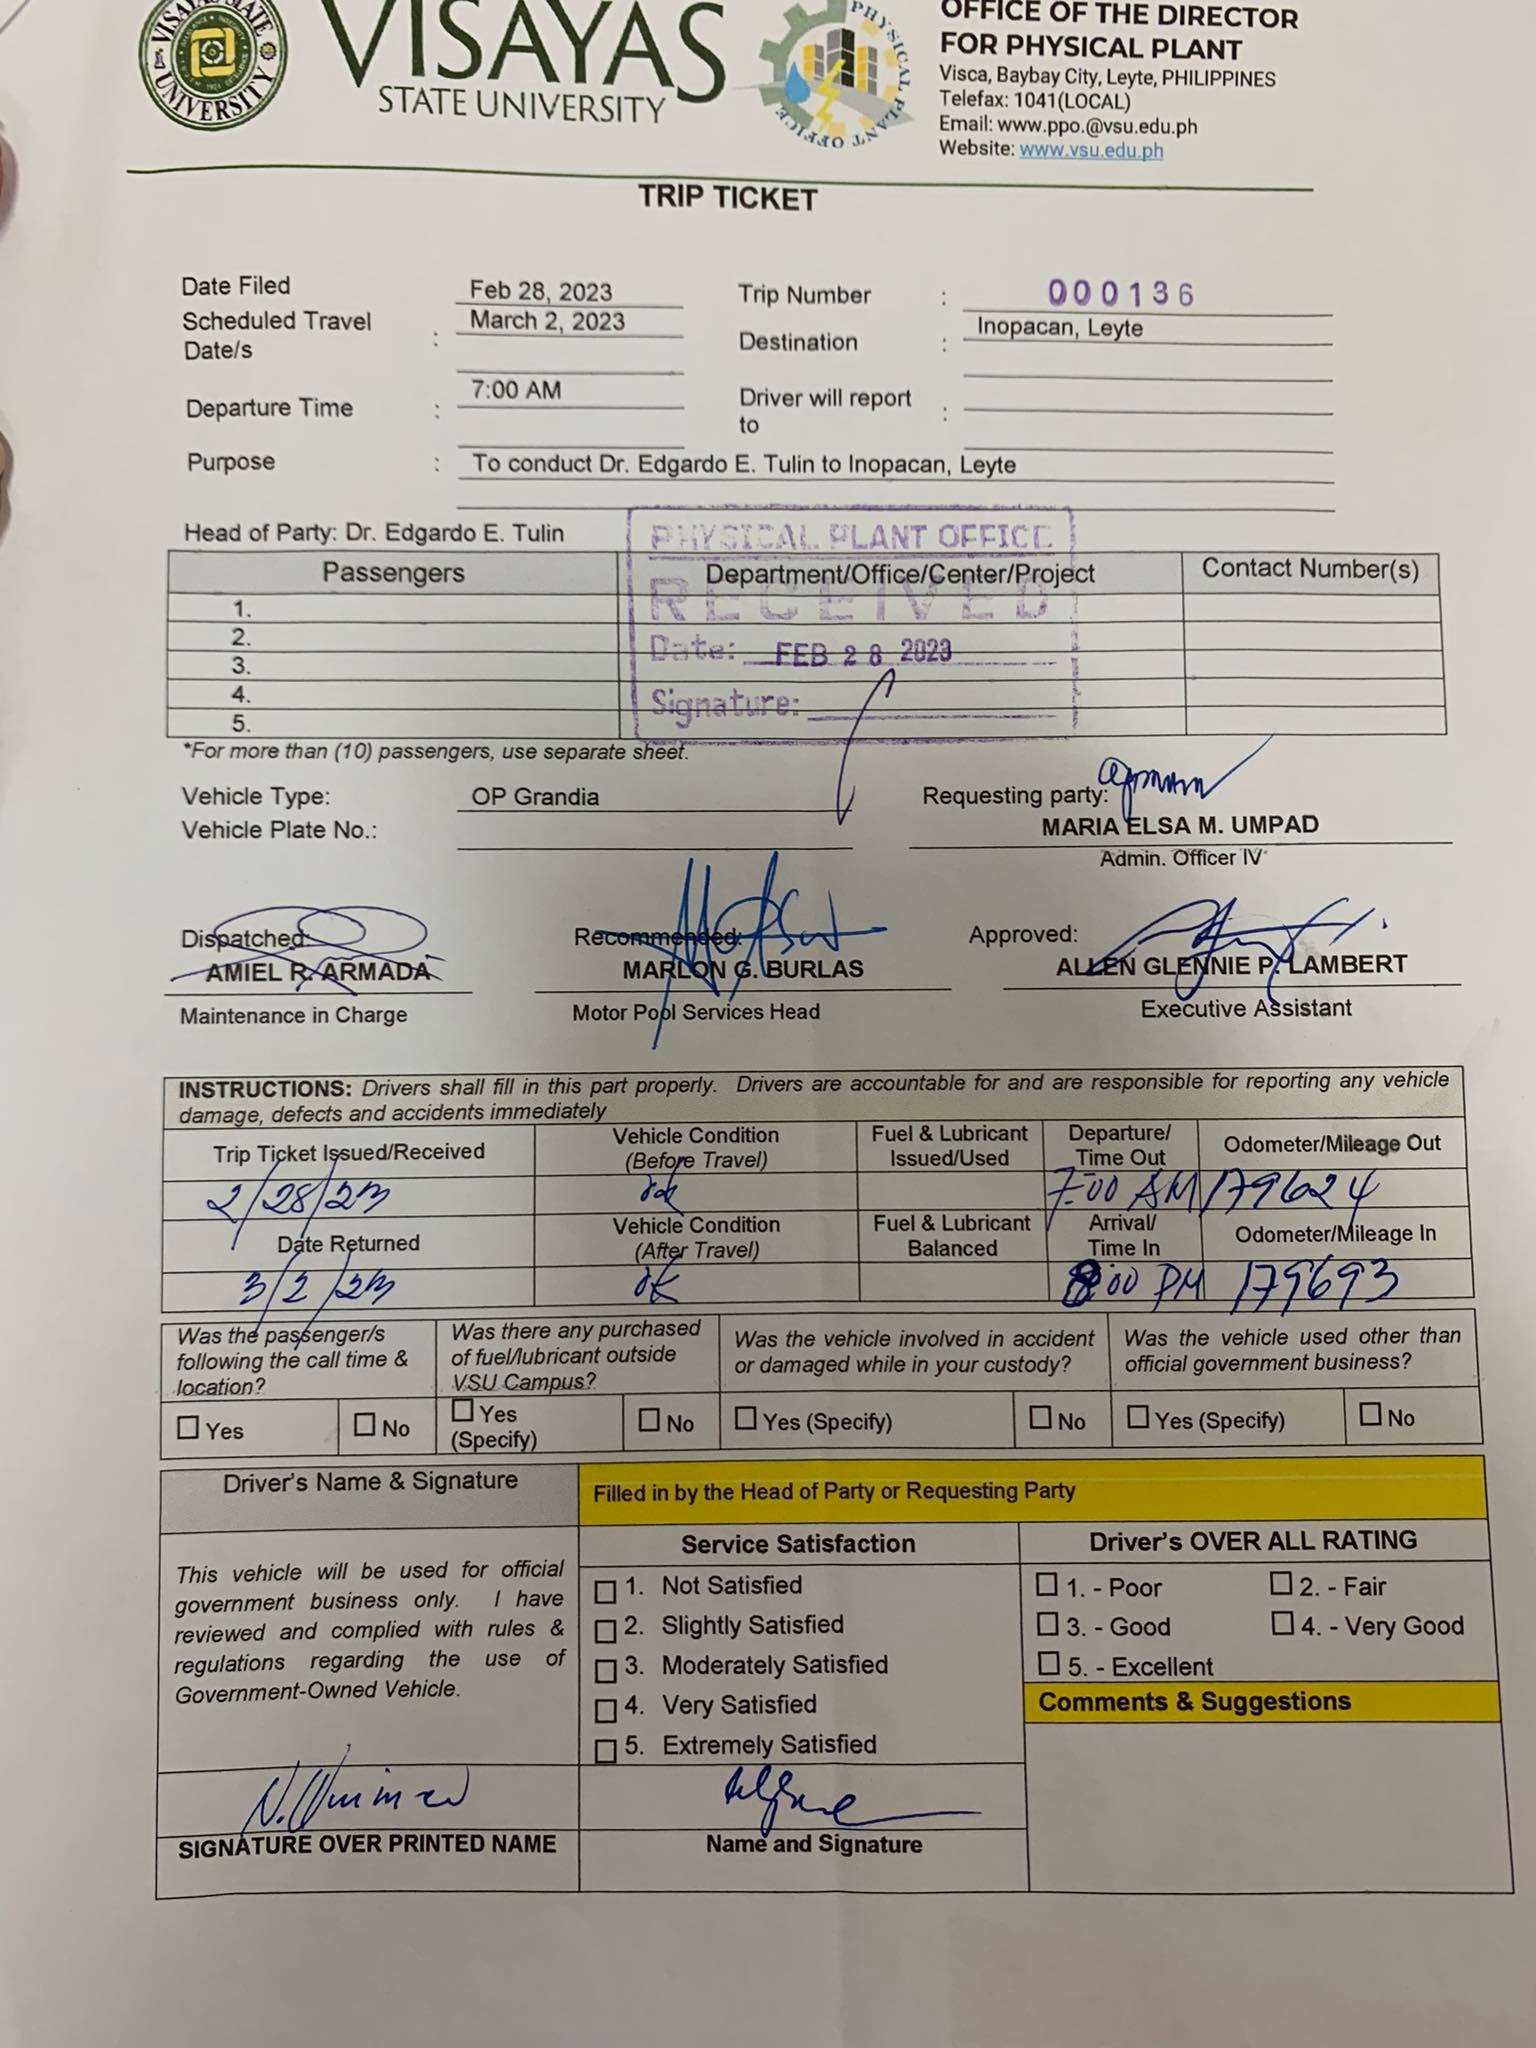 VISAYAS STATE UNIVERSITY
VISAYAS
STATE UNIVERSITY
PHYSICAL PLANT OFFICE
OFFICE OF THE DIRECTOR
FOR PHYSICAL PLANT
Visca, Baybay City, Leyte, PHILIPPINES
Telefax: 1041(LOCAL)
Email: www.ppo.@vsu.edu.ph
Website: www.vsu.edu.ph
TRIP TICKET
Date Filed Feb 28, 2023 Trip Number : 000136
Scheduled Travel Date/s : March 2, 2023 Destination : Inopacan, Leyte
Departure Time : 7:00 AM Driver will report to :
Purpose : To conduct Dr. Edgardo E. Tulin to Inopacan, Leyte
Head of Party: Dr. Edgardo E. Tulin
PHYSICAL PLANT OFFICE
RECEIVED
Date: FEB 28 2023
Signature:
Passengers Department/Office/Center/Project Contact Number(s)
1.
2.
3.
4.
5.
*For more than (10) passengers, use separate sheet.
Vehicle Type: OP Grandia Requesting party:
Vehicle Plate No.: MARIA ELSA M. UMPAD
Admin. Officer IV
Dispatched: Recommended: Approved:
AMIEL R. ARMADA MARLON G. BURLAS ALLEN GLENNIE P. LAMBERT
Maintenance in Charge Motor Pool Services Head Executive Assistant
INSTRUCTIONS: Drivers shall fill in this part properly. Drivers are accountable for and are responsible for reporting any vehicle
damage, defects and accidents immediately
Trip Ticket Issued/Received Vehicle Condition (Before Travel) Fuel & Lubricant Issued/Used Departure/ Time Out Odometer/Mileage Out
2/28/23 ok 7:00 AM 179624
Date Returned Vehicle Condition (After Travel) Fuel & Lubricant Balanced Arrival/ Time In Odometer/Mileage In
3/2/23 ok 8:00 PM 179693
Was the passenger/s following the call time & location? Was there any purchased of fuel/lubricant outside VSU Campus? Was the vehicle involved in accident or damaged while in your custody? Was the vehicle used other than official government business?
Yes No Yes (Specify) No Yes (Specify) No Yes (Specify) No
Driver's Name & Signature
Filled in by the Head of Party or Requesting Party
This vehicle will be used for official
government business only. I have
reviewed and complied with rules &
regulations regarding the use of
Government-Owned Vehicle.
SIGNATURE OVER PRINTED NAME
Service Satisfaction
1. Not Satisfied
2. Slightly Satisfied
3. Moderately Satisfied
4. Very Satisfied
5. Extremely Satisfied
Name and Signature
Driver's OVER ALL RATING
1. - Poor 2. - Fair
3. - Good 4. - Very Good
5. - Excellent
Comments & Suggestions